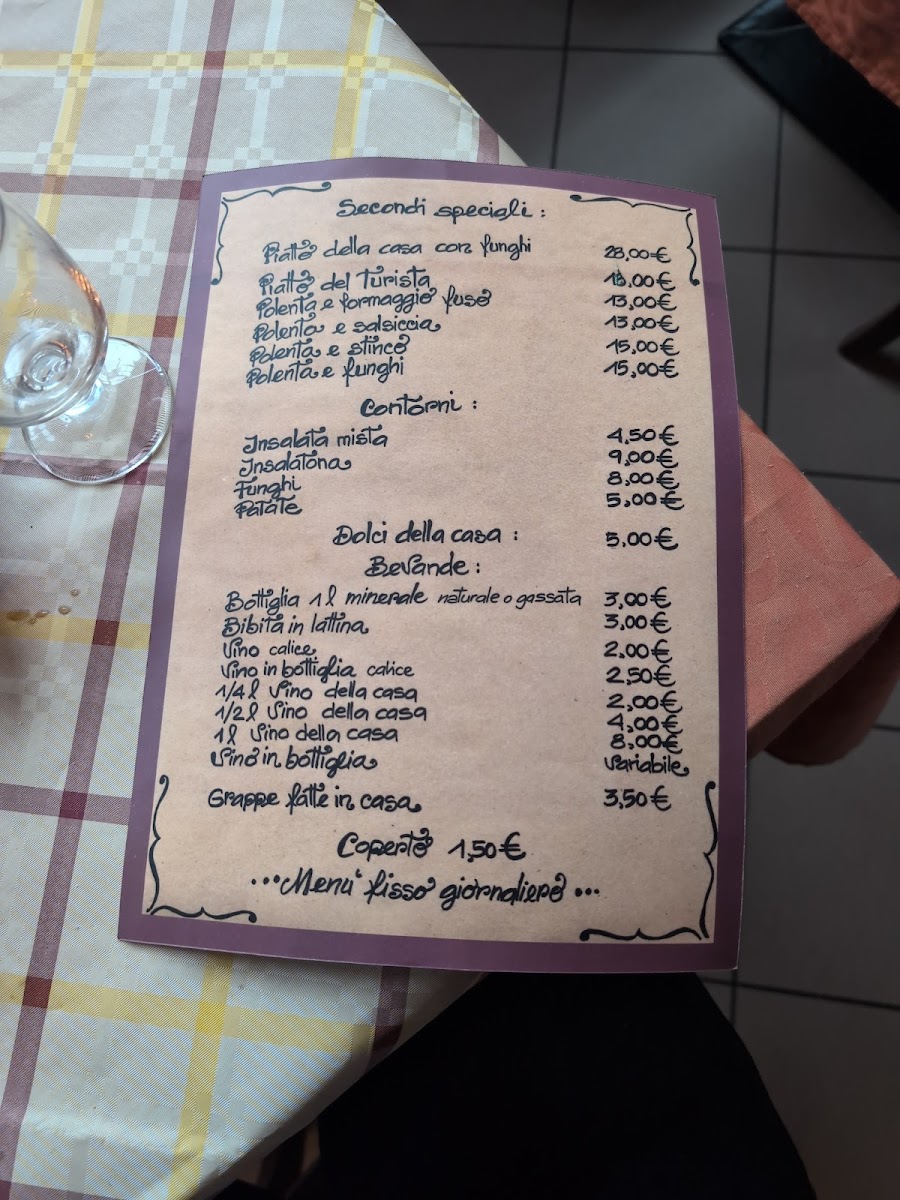 Secondi speciali :
Piatto della casa con funghi 28,00€
Piatto del Turista
Polenta e formaggio fuso 13,00€
Polenta e salsiccia 13,00€
Polenta e stinco 15,00€
Polenta e funghi 15,00€
Contorni :
Insalata mista 4,50€
Insalatona 9,00€
Funghi 8,00€
Patate 5,00€
Dolci della casa : 5,00€
Bevande :
Bottiglia 1l minerale naturale o gassata 3,00€
Bibita in lattina 3,00€
Vino calice 2,00€
Vino in bottiglia calice 2,50€
1/4 l Vino della casa 2,00€
1/2 l Vino della casa 4,00€
1l Vino della casa 8,00€
Vino in bottiglia Variabile
Grappe fatte in casa 3,50€
Coperto 1,50€
...Menu' fisso giornaliero...